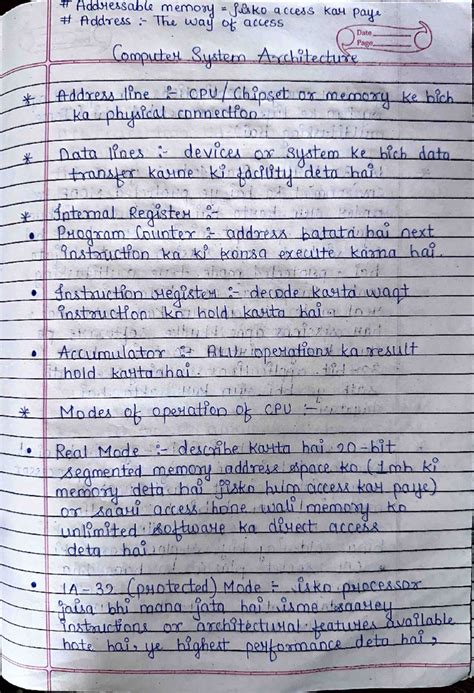 # Addressable memory = jisko access kar paye
# Address :- The way of access
Date
Page
Computer System Architecture
* Address line :- CPU/Chipset or memory ke bich
ka physical connection
* Data lines :- devices or system ke bich data
transfer karne ki facility deta hai
* Internal Register :-
• Program Counter :- address batata hai next
instruction ka ki konsa execute karna hai.
• Instruction register :- decode karta waqt
instruction ko hold karta hai
• Accumulator :- ALU operations ka result
hold karta hai.
* Modes of operation of CPU :-
• Real Mode :- describe karta hai 20-bit
segmented memory address space ko (1mb ki
memory deta hai jisko hum access kar paye)
or saari access hone wali memory ko
unlimited software ka direct access
deta hai
• IA-32 (protected) Mode :- isko processor
jaisa bhi mana jata hai isme saarey
instructions or architectural features available
hote hai, ye highest performance deta hai,